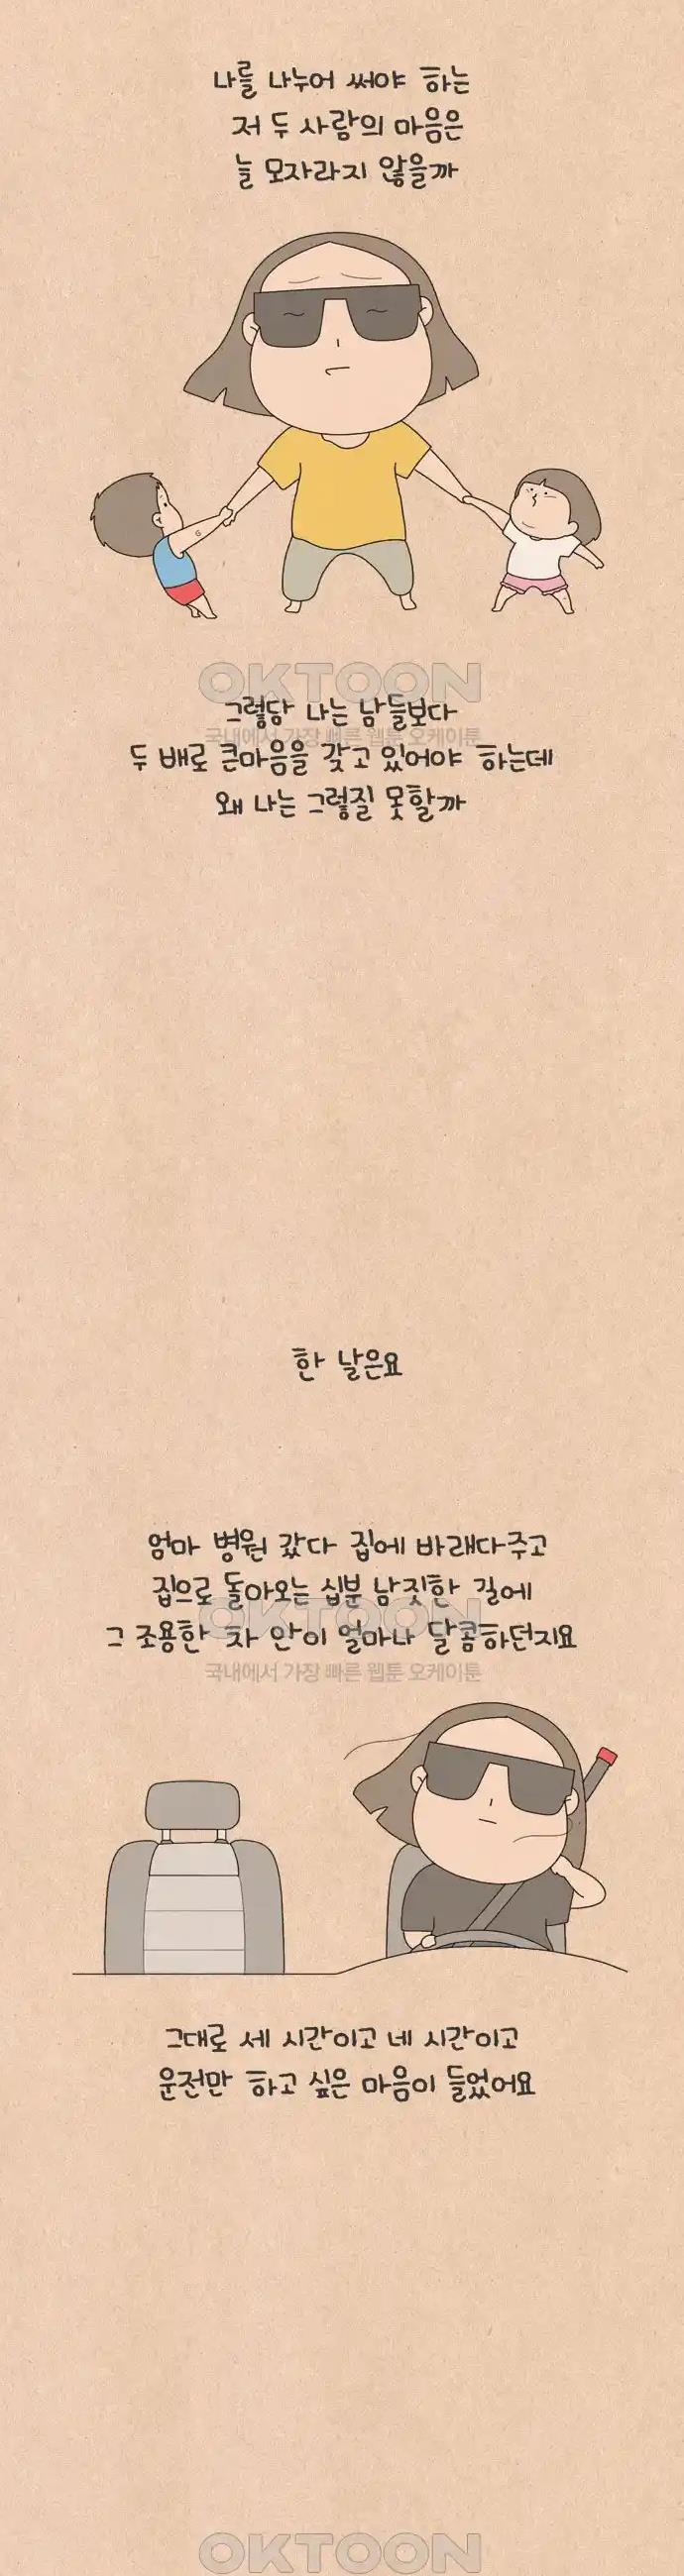 나를 나누어 써야 하는
저 두 사람의 마음은
늘 모자라지 않을까
OKTOON
그렇담 나는 남들보다
국내에서 가장 빠른 웹툰 오케이툰
두 배로 큰마음을 갖고 있어야 하는데
왜 나는 그렇질 못할까
한 날은요
엄마 병원 갔다 집에 바래다주고
집으로 돌아오는 십분 남짓한 길에
OKTOON
그 조용한 차 안이 얼마나 달콤하던지요
국내에서 가장 빠른 웹툰 오케이툰
그대로 세 시간이고 네 시간이고
운전만 하고 싶은 마음이 들었어요
OKTOON